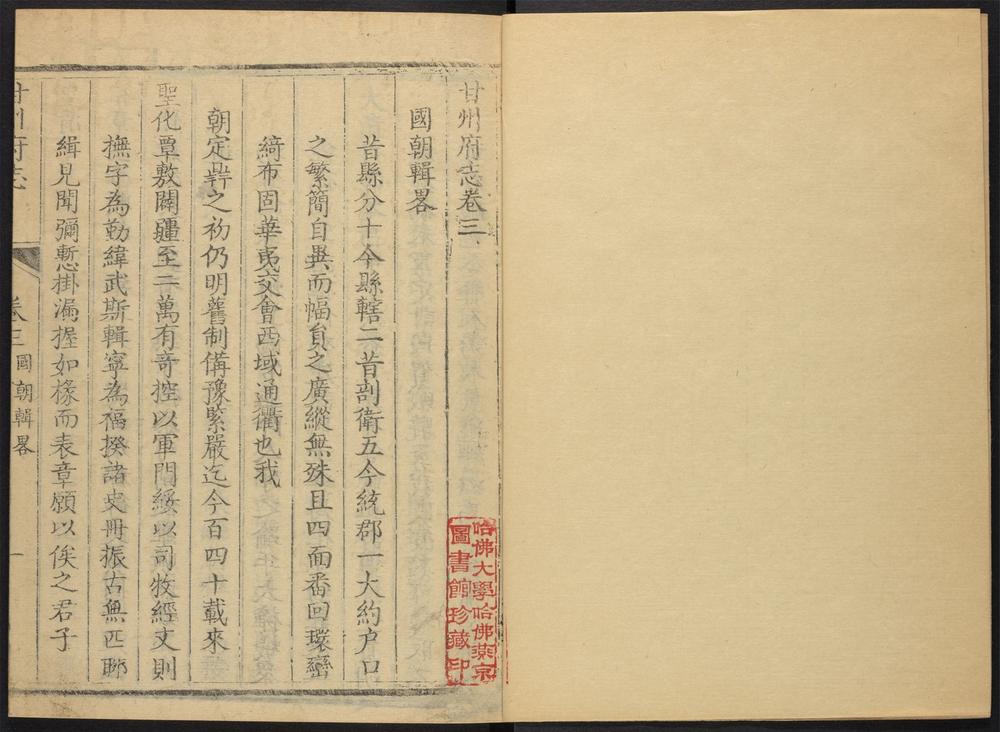 甘州府志卷三
國朝輯畧
昔縣分十今縣轄二昔剖衛五今統郡一大約户口
之繁簡自異而幅負之廣縱無殊且四面番回環巒
綺布固華夷交會西域通衢也我
朝定鼎之初仍明舊制備豫緊嚴迄今百四十載來
聖化覃敷闢疆至二萬有奇控以軍門綏以司牧經文則
撫字為勤緯武斯輯寧為福揆諸史冊振古無匹聊
緝見聞彌慙掛漏握如椽而表章願以俟之君子
甘州府志
卷三
國朝輯畧
一
哈佛大學哈佛燕京
圖書館珍藏印